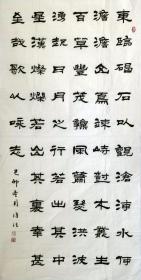 東臨碣石以觀滄海水何
澹澹山島竦峙樹木叢生
百草豐茂秋風蕭瑟洪波
湧起日月之行若出其中
星漢燦爛若出其裏幸甚
至哉歌以咏志